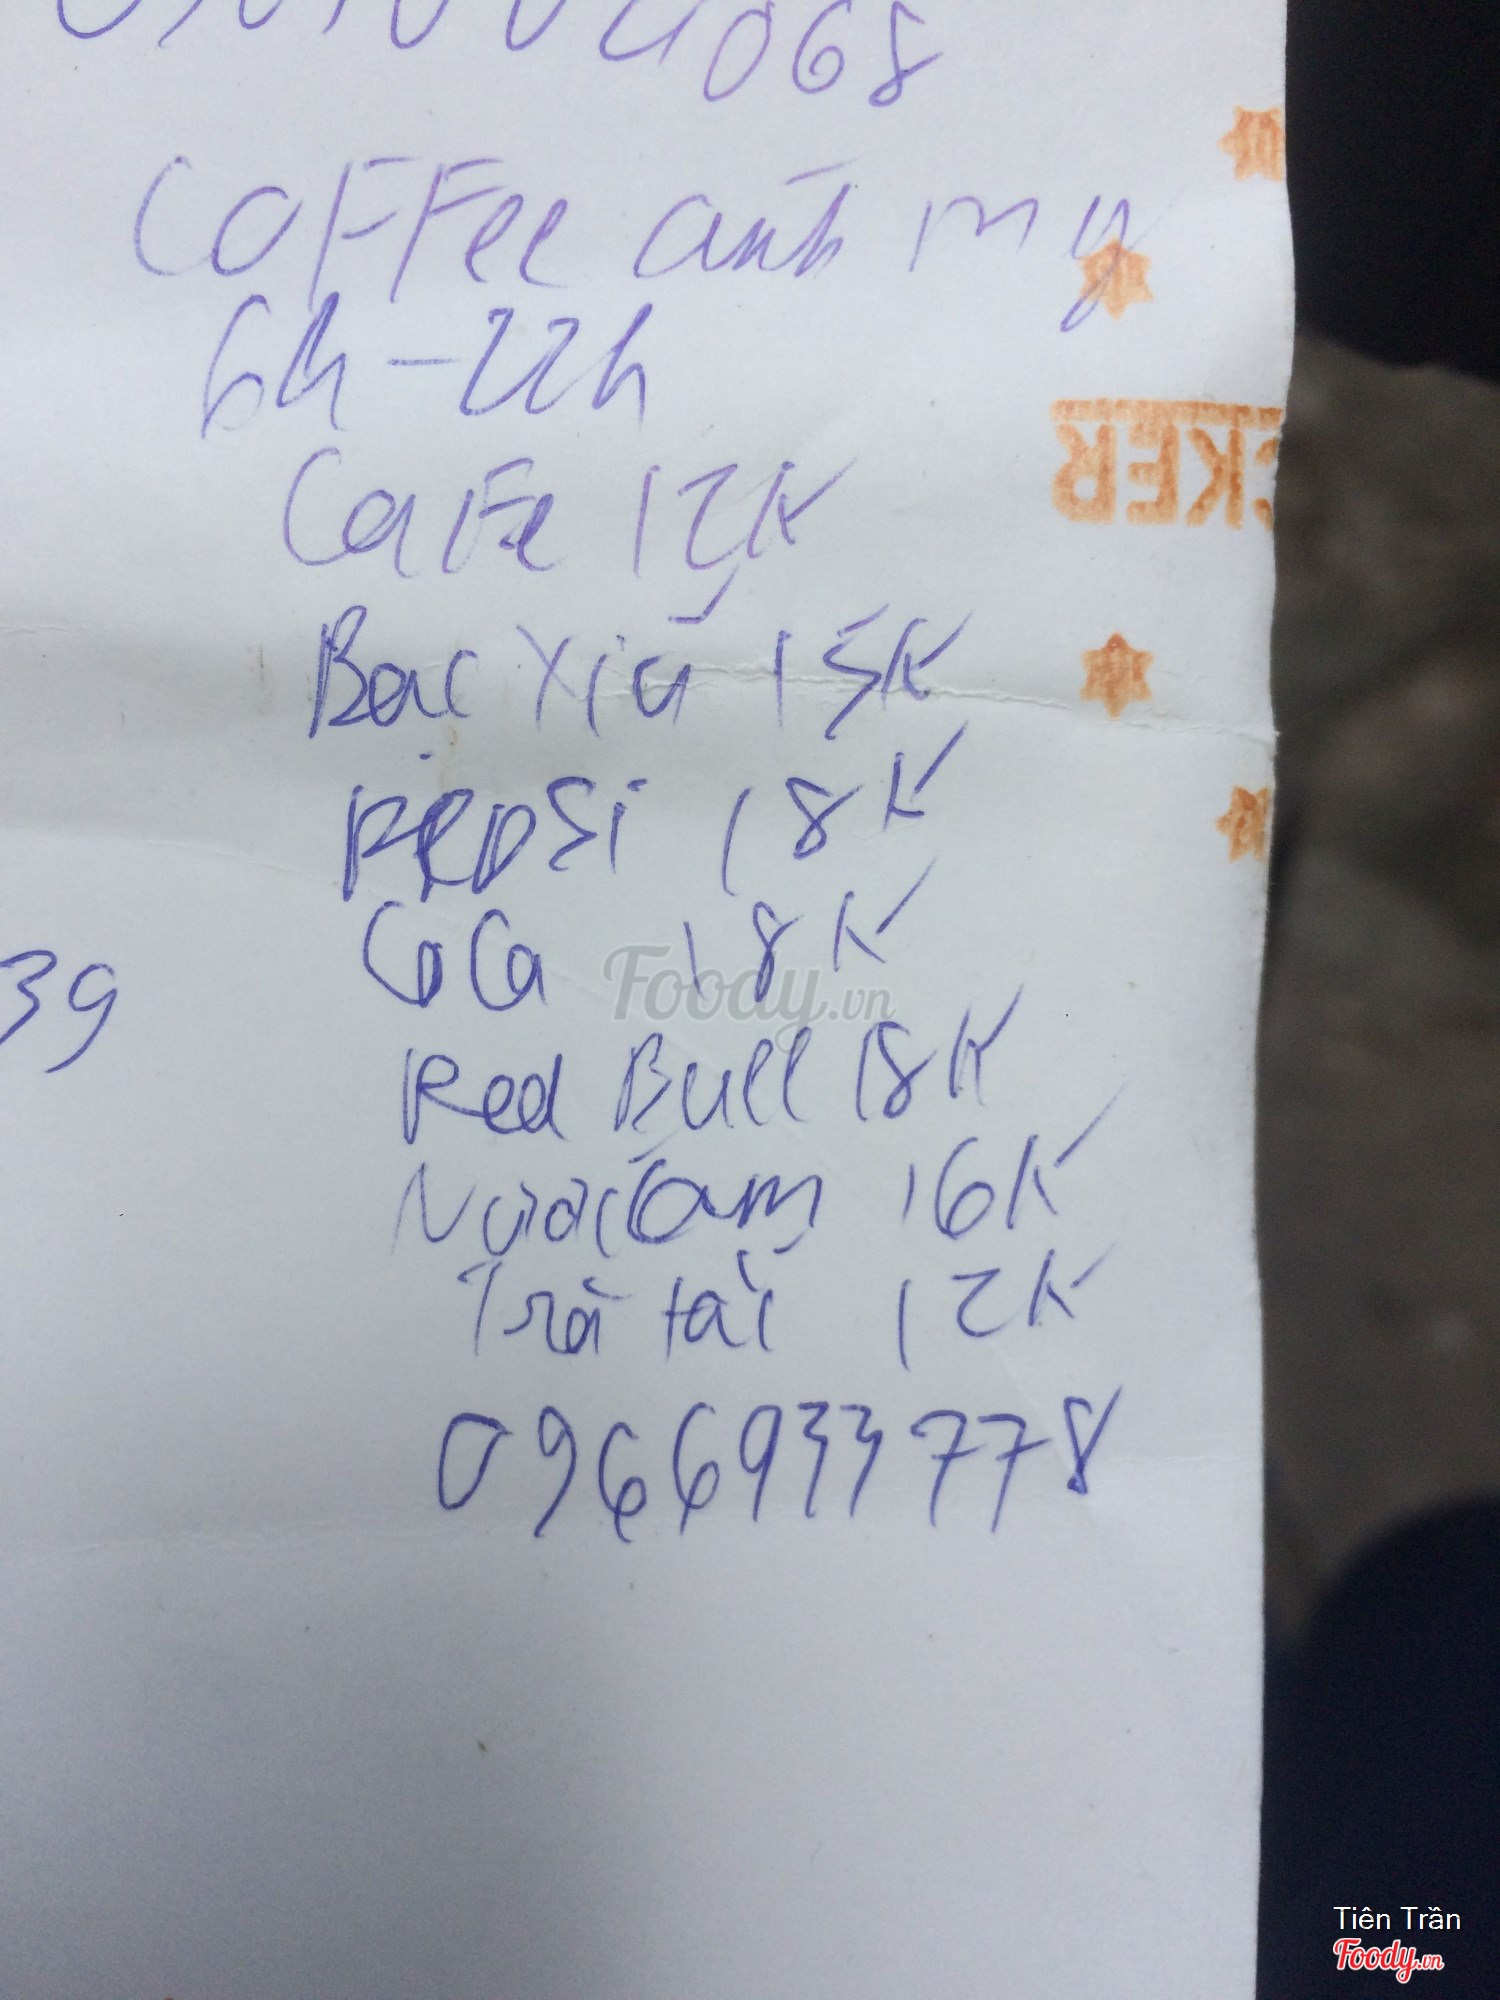 068
Coffee anh my
6h - 22h
Cafe 12K
Bạc xíu 15K
Pepsi 18K
18K
Red Bull 18K
Nước 16K
Trà tắc 12K
0966933778
39
CKER
Foody.vn
Tiên Trần
Foody.vn